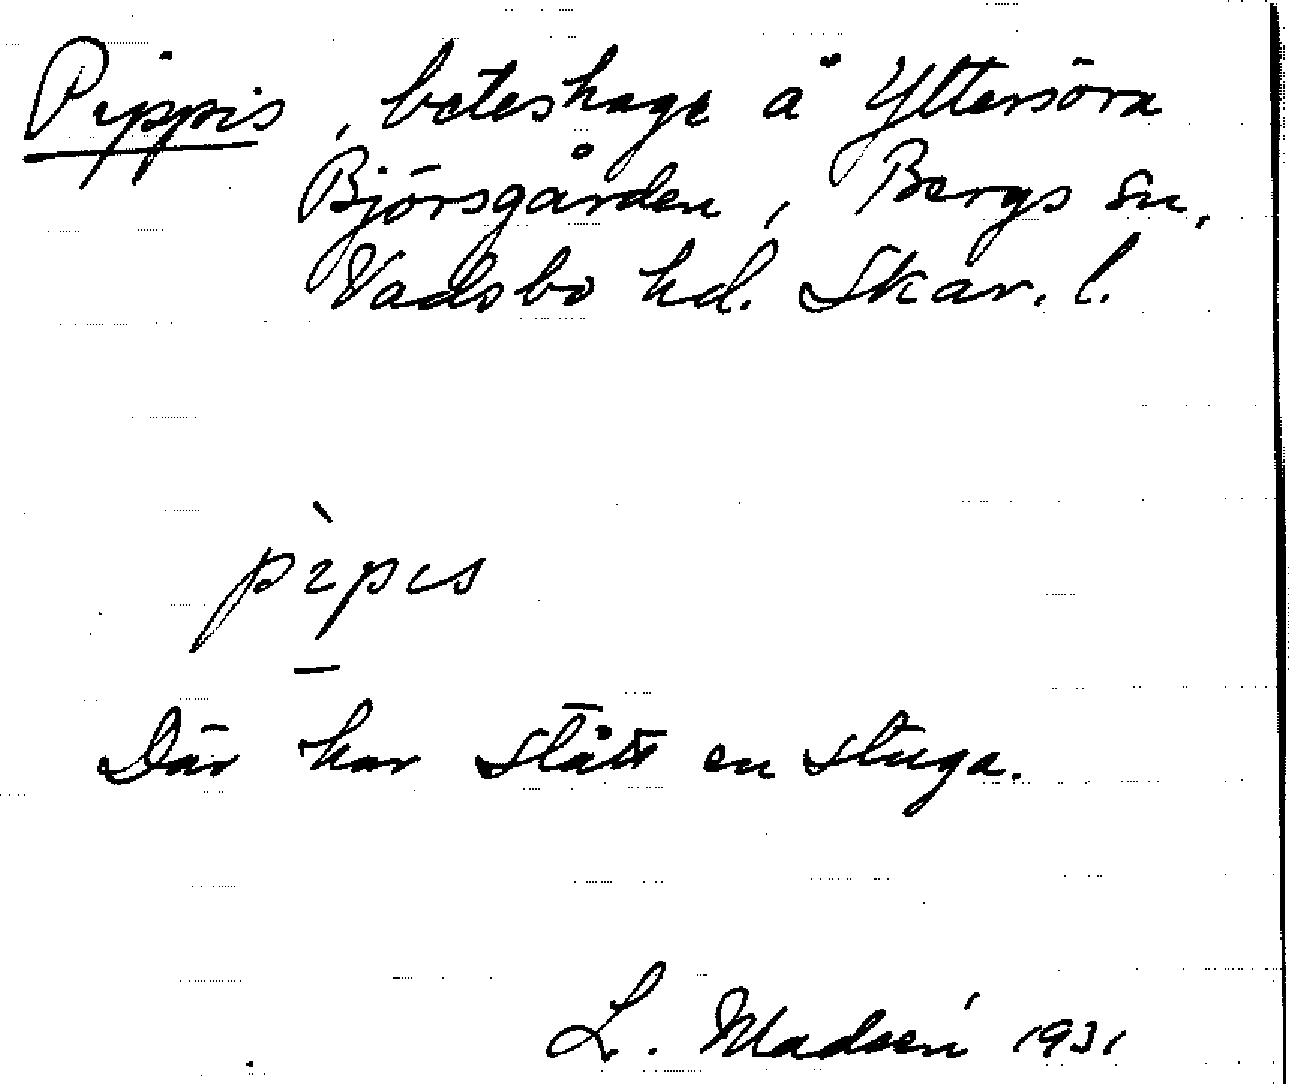 Pippis, beteshage å Yttersöra
Björsgården, Bergs sn,
Vadsbo hd. Skar. l.
pìpɩs
Där har stått en stuga.
L. Madsén 1931